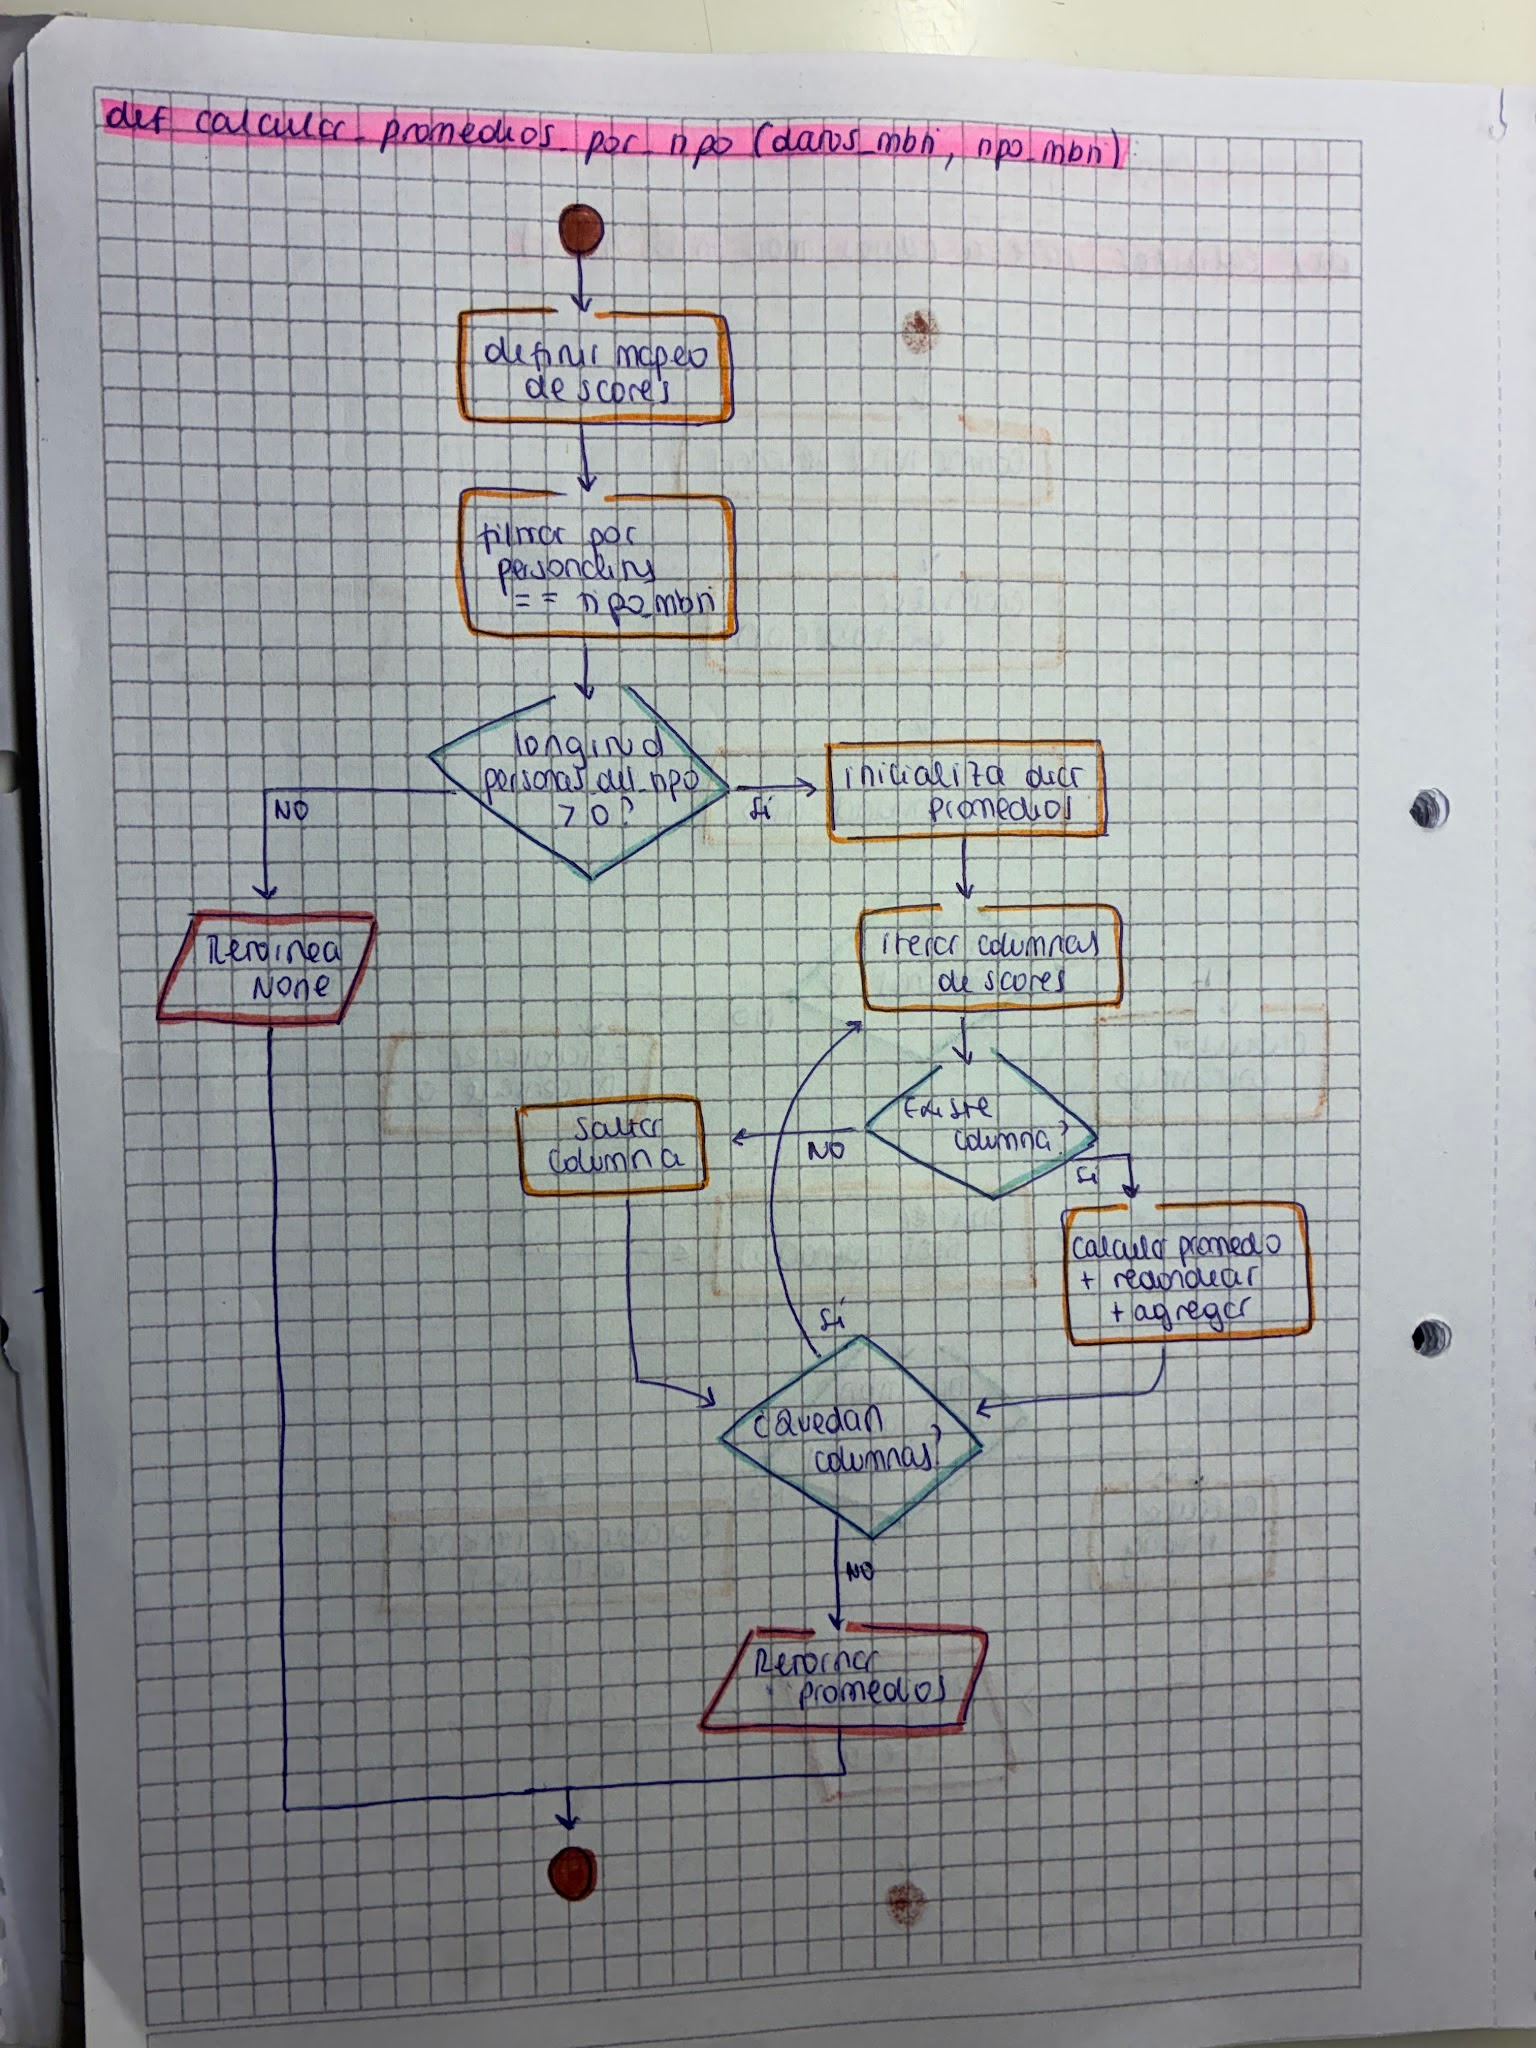 def calcular_promedios_por_tipo (datos_mbti, tipo_mbti):
definir mapeo
de scores
filtrar por
personalidad
== tipo_mbti
longitud
personas_del_tipo
> 0?
NO
Sí
inicializa dicc
promedios
Retornea
None
iterar columnas
de scores
Existe
columna?
NO
Sí
saltar
columna
calcular promedio
+ redondear
+ agregar
Sí
¿Quedan
columnas?
NO
Retornar
promedios